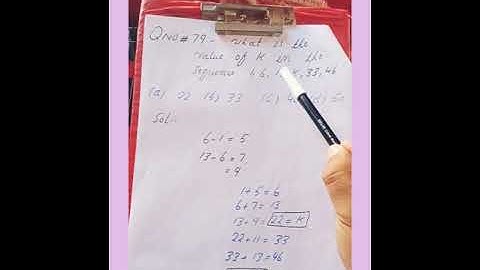 QNO# 79:- what is the
value of K in the
Sequence 1, 6, 1 K, 33, 46
(a) 22 (b) 33 (c) 4 (d)
Sol:-
6-1 = 5
13-6 = 7
= 9
1+5 = 6
6+7 = 13
13+9 = 22 = K
22+11 = 33
33+13 = 46